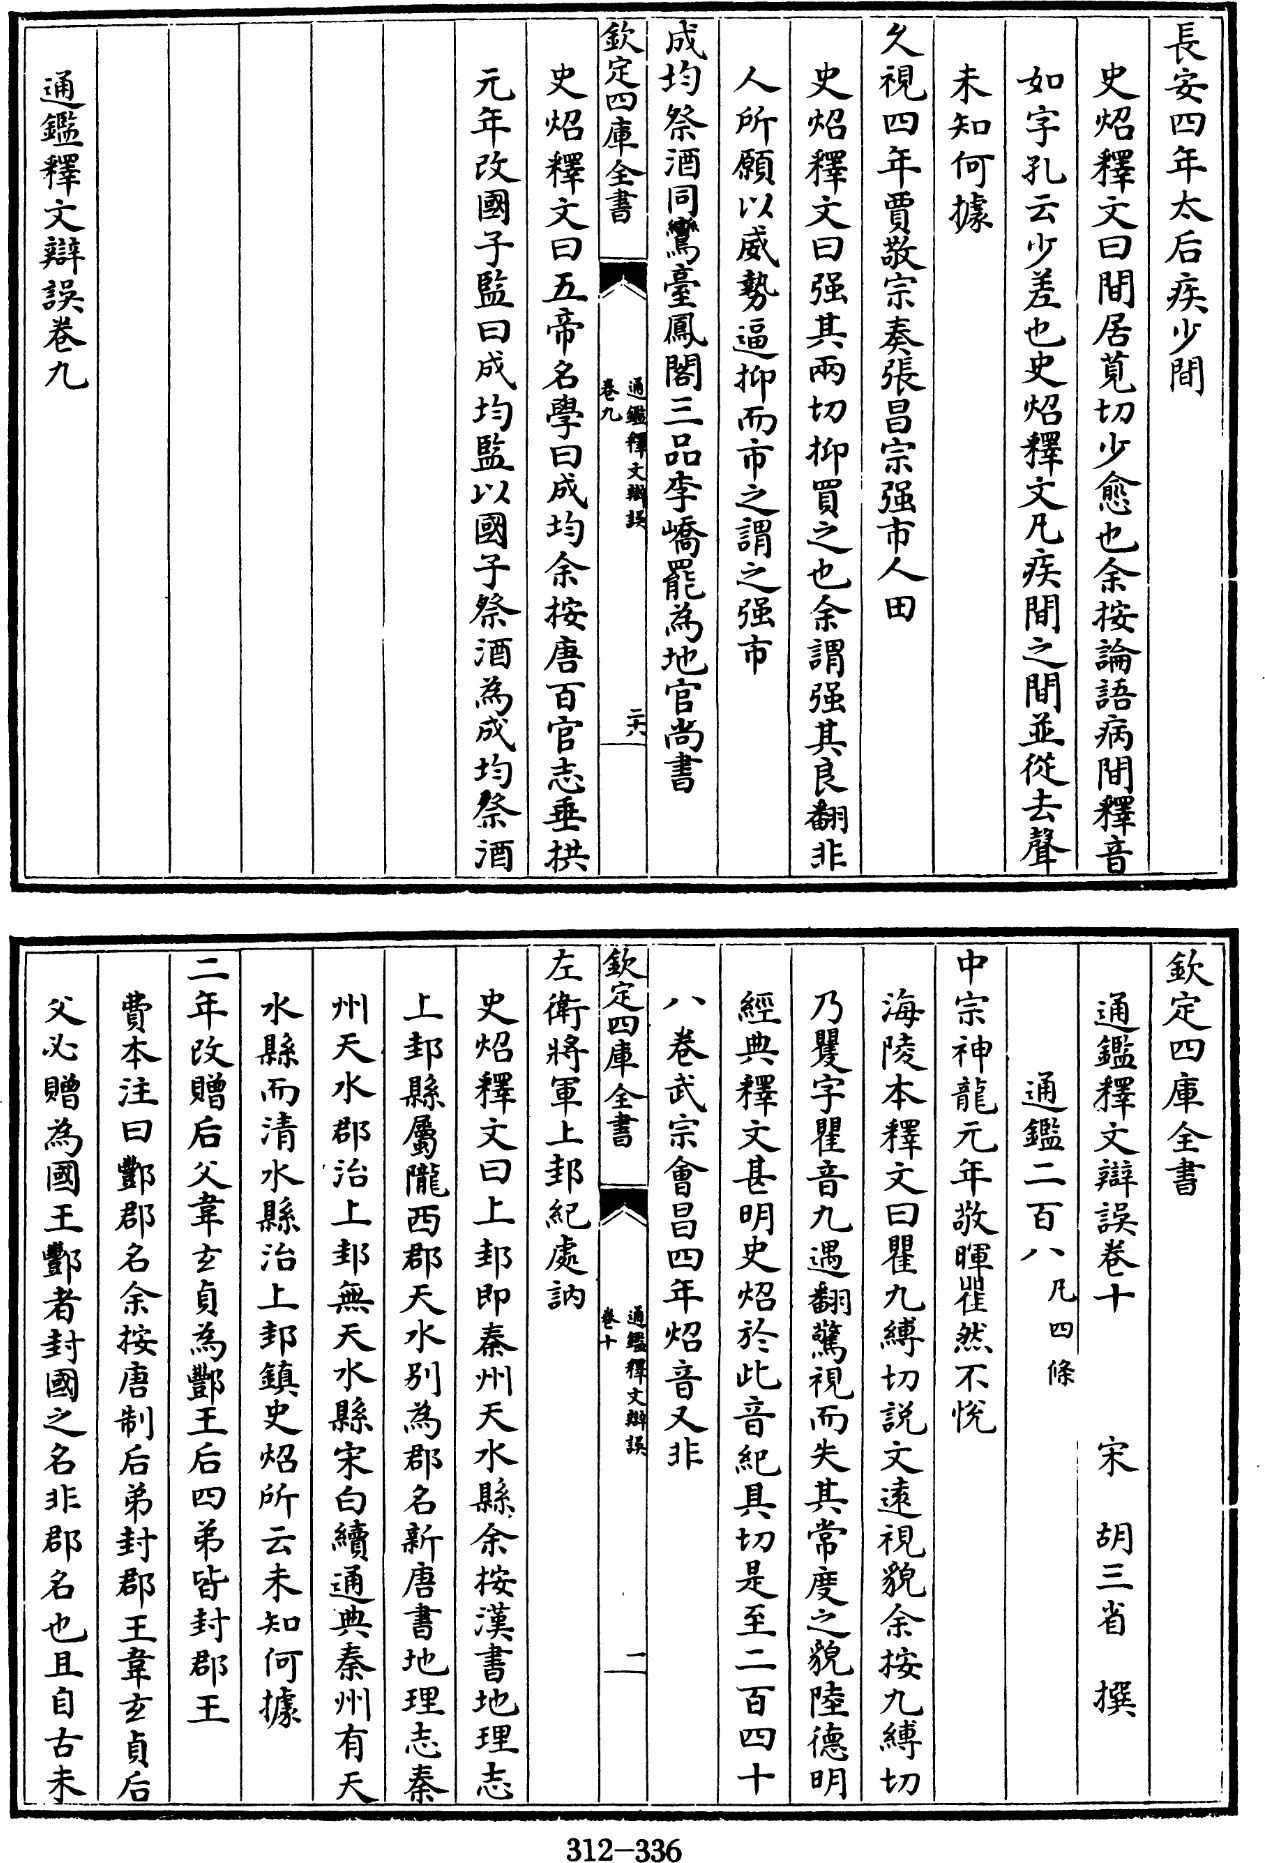 長安四年太后疾少間
史炤釋文曰間居莧切少愈也余按論語病間釋音
如字孔云少差也史炤釋文凡疾間之間並從去聲
未知何據
久視四年賈敬宗奏張昌宗强市人田
史炤釋文曰强其兩切抑買之也余謂强其良翻非
人所願以威勢逼抑而市之謂之强市
成均祭酒同鸞臺鳳閣三品李嶠罷為地官尚書
欽定四庫全書
通鑑釋文辯誤
卷九
二六
史炤釋文曰五帝名學曰成均余按唐百官志垂拱
元年改國子監曰成均監以國子祭酒為成均祭酒
通鑑釋文辯誤卷九
欽定四庫全書
通鑑釋文辯誤卷十 宋 胡三省 撰
通鑑二百八 凡四條
中宗神龍元年敬暉瞿然不悅
海陵本釋文曰瞿九縛切説文逺視貌余按九縛切
乃矍字瞿音九遇翻驚視而失其常度之貌陸德明
經典釋文甚明史炤於此音紀具切是至二百四十
八卷武宗會昌四年炤音又非
欽定四庫全書
通鑑釋文辯誤
卷十
一
左衛將軍上邽紀處訥
史炤釋文曰上邽即秦州天水縣余按漢書地理志
上邽縣屬隴西郡天水别為郡名新唐書地理志秦
州天水郡治上邽無天水縣宋白續通典秦州有天
水縣而清水縣治上邽鎮史炤所云未知何據
二年改贈后父韋玄貞為酆王后四弟皆封郡王
費本注曰酆郡名余按唐制后弟封郡王韋玄貞后
父必贈為國王酆者封國之名非郡名也且自古未
312-336